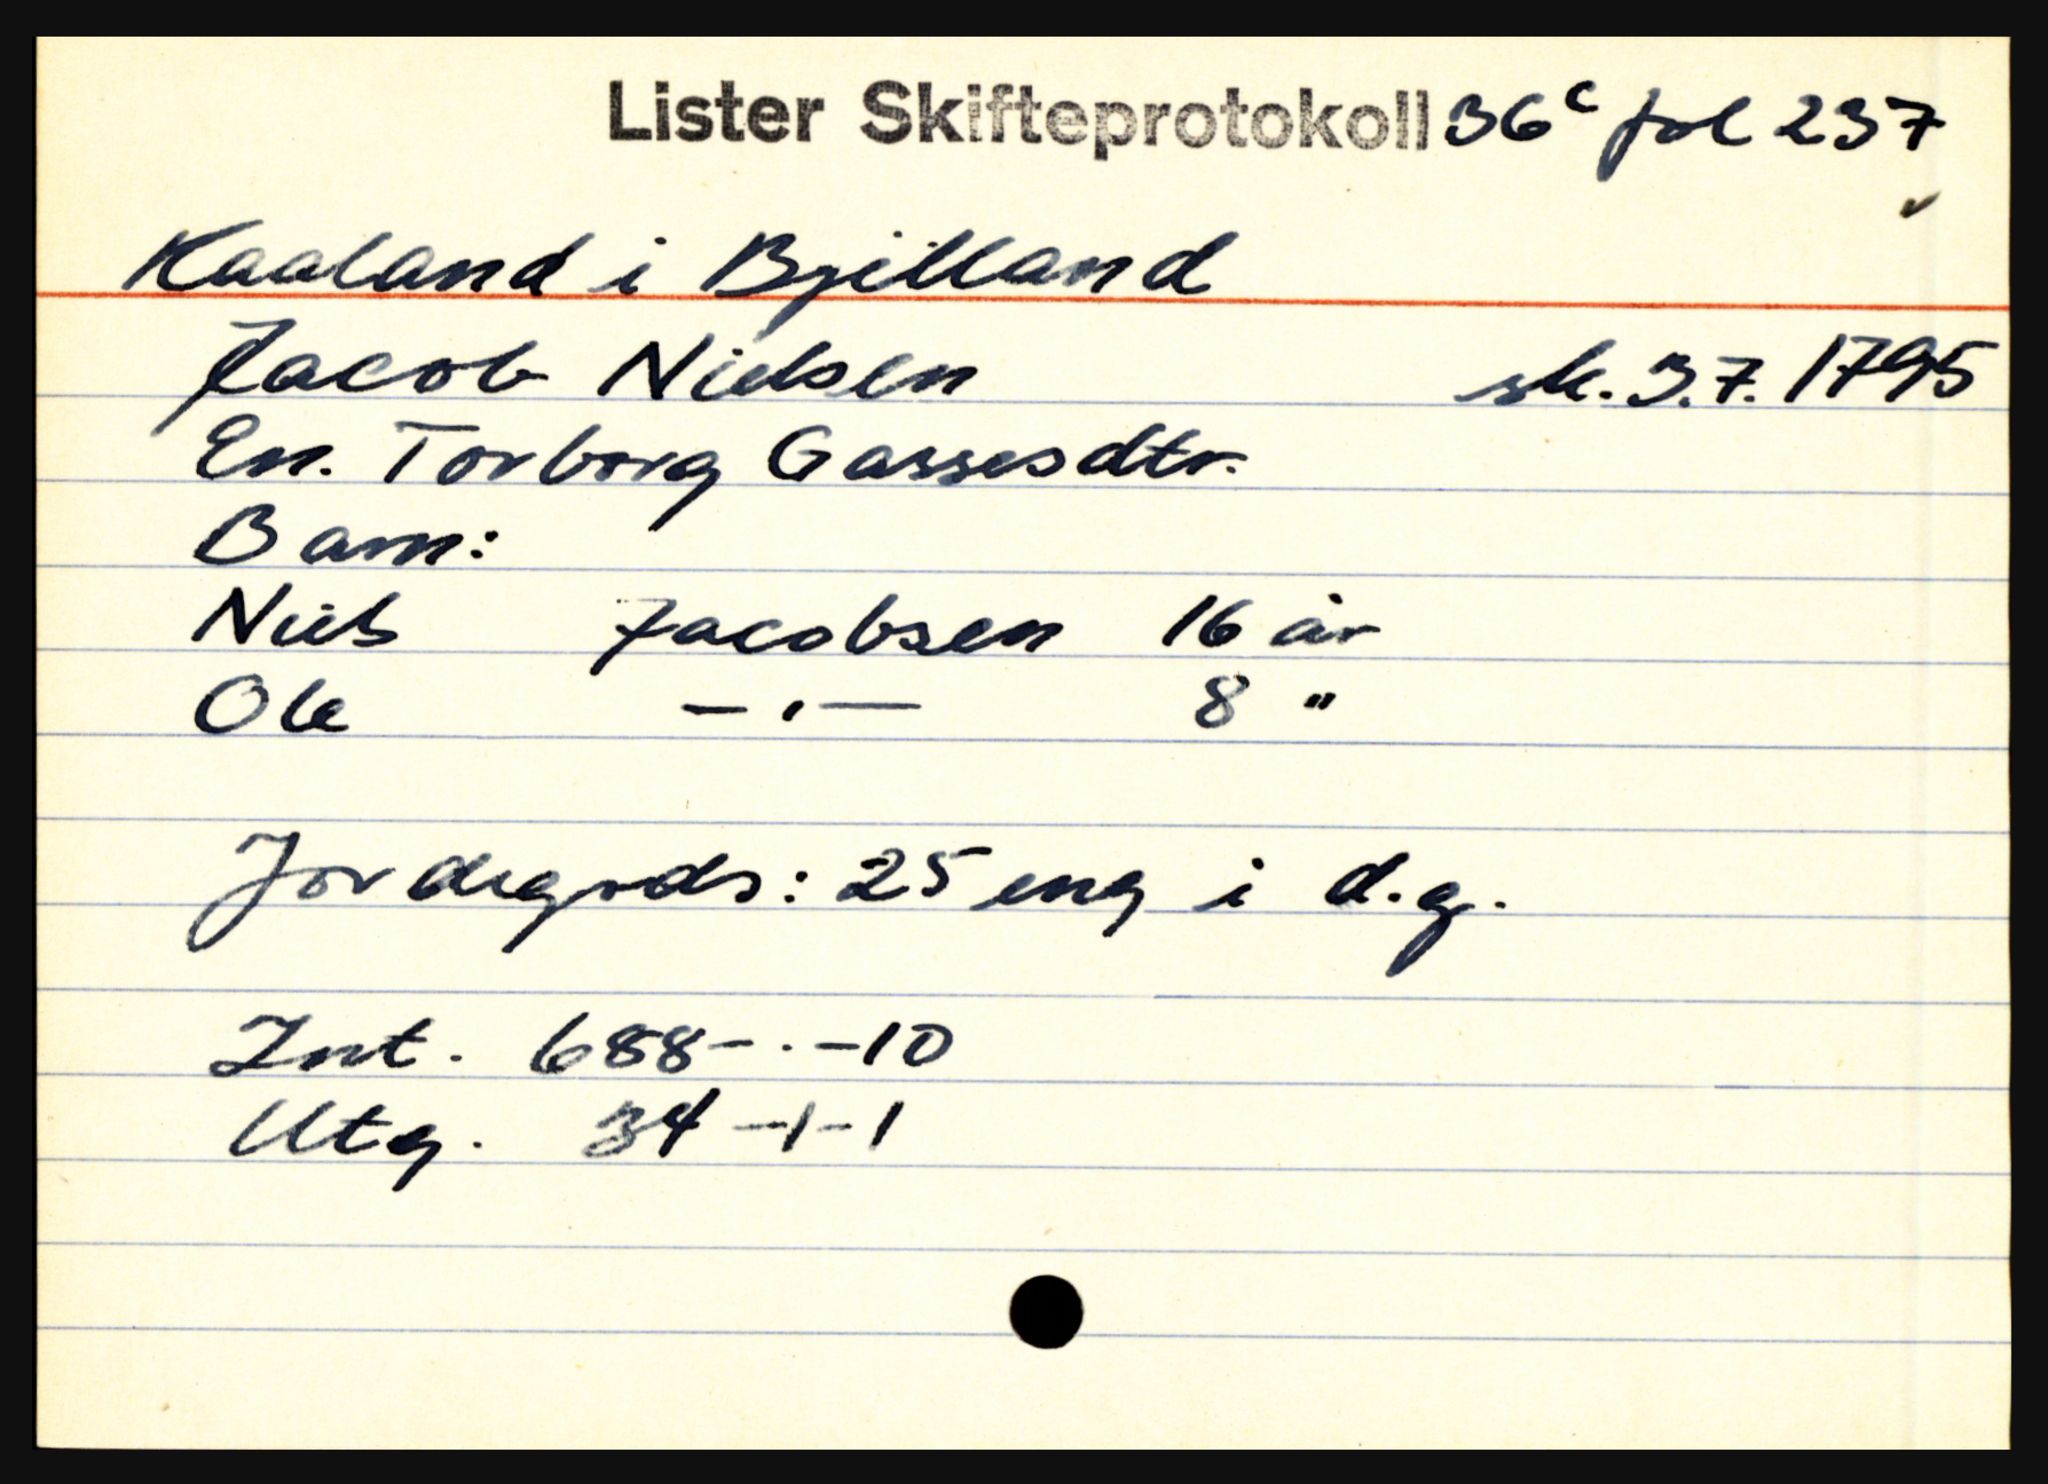 Lister Skifteprotokoll 36c fol 237
Kaaland i Bjelland
Jacob Nielsen sk. 3.7. 1795
En. Torborg Gassesdtr.
Barn:
Niels Jacobsen 16 år
Ole — , — 8 "
Jordegods: 25 eng i d.g.
Int. 688 - . - 10
Utg. 34 - 1 - 1